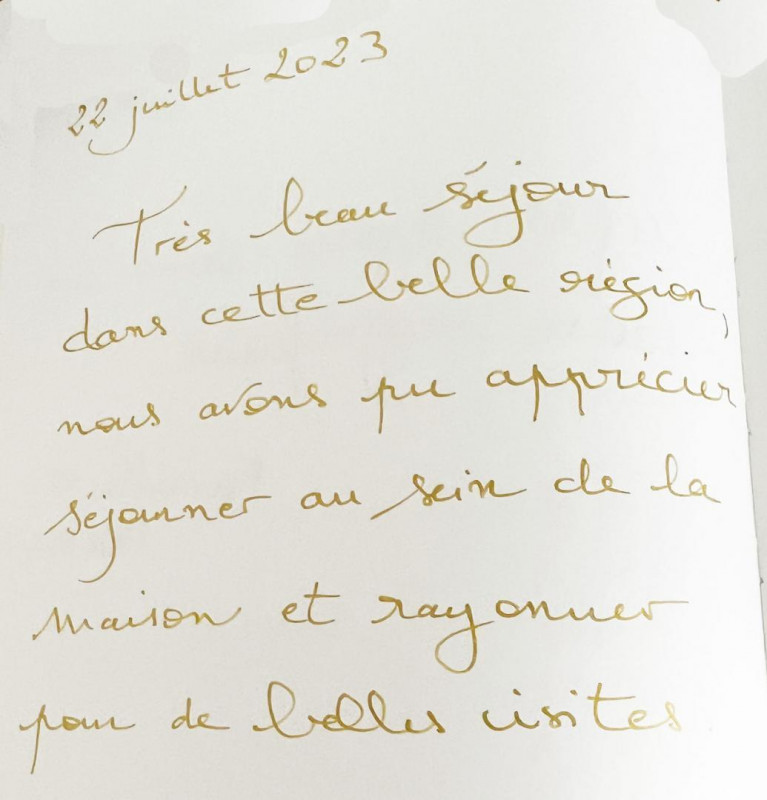 22 juillet 2023
Très beau séjour
dans cette belle région,
nous avons pu apprécier
séjourner au sein de la
maison et rayonner
pour de belles visites